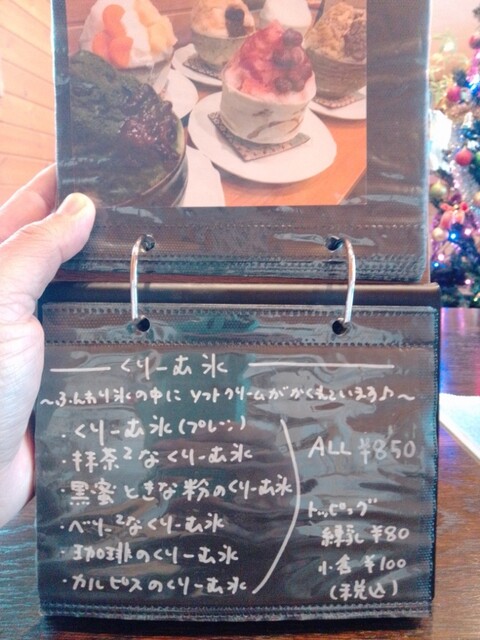 くりーむ氷
～ふんわり氷の中にソフトクリームがかくれています♪～
・くりーむ氷(プレーン)
・抹茶²なくりーむ氷
・黒蜜ときな粉のくりーむ氷
・ベリー²なくりーむ氷
・珈琲のくりーむ氷
・カルピスのくりーむ氷
ALL ¥850
トッピング
練乳 ¥80
小倉 ¥100
(税込)